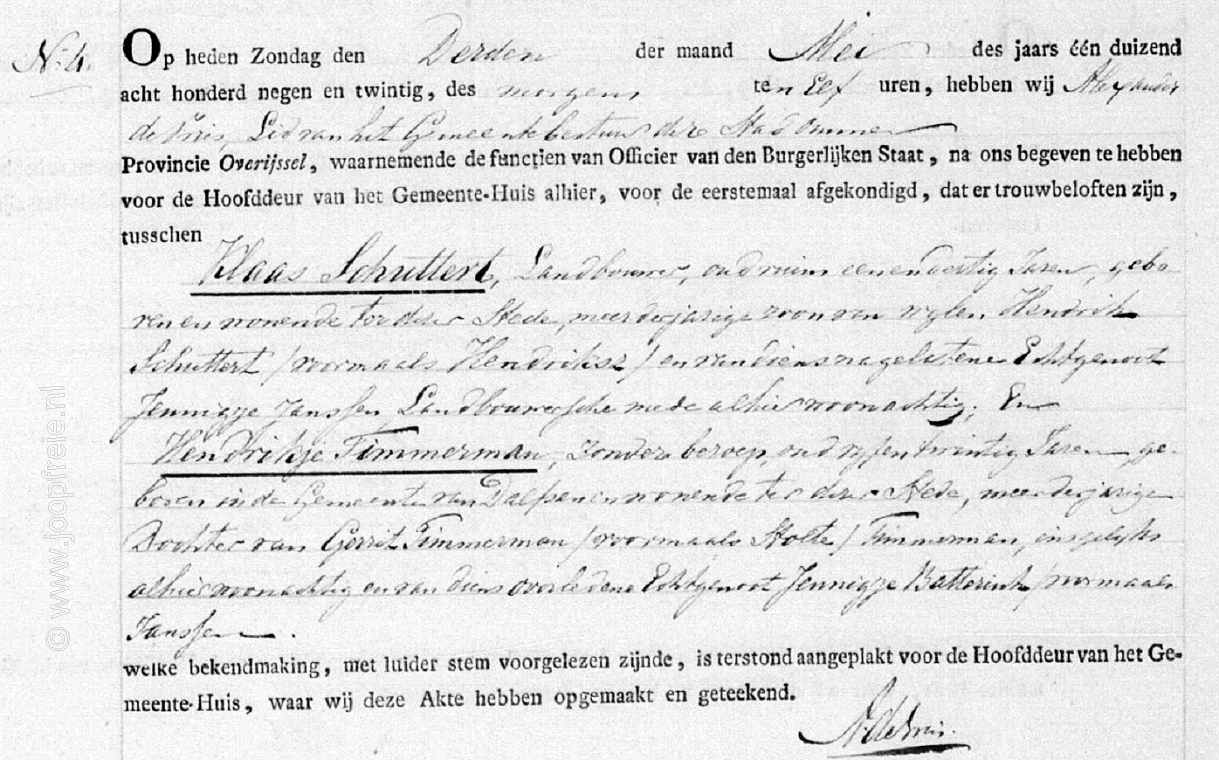 No. 4.
Op heden Zondag den Derden der maand Mei des jaars één duizend
acht honderd negen en twintig, des morgens ten Elf uren, hebben wij Alexander
Lid van het Gemeentebestuur der Stad Ommen
Provincie Overijssel, waarnemende de functien van Officier van den Burgerlijken Staat, na ons begeven te hebben
voor de Hoofddeur van het Gemeente-Huis alhier, voor de eerstemaal afgekondigd, dat er trouwbeloften zijn,
tusschen
Klaas Schuttert, Landbouwer, oud ruim eenendertig Jaren, gebo
ren en wonende te dezer Stede, meerderjarige zoon van wylen Hendrik
Schuttert /voormaals Hendriksz/ en van diens nagelatene Echtgenoot
Jennigje Janssen Landbouwersche mede alhier woonachtig; En
Hendrikje Timmerman, zonder beroep, oud vyfentwintig Jaren ge-
boren in de Gemeente van Dalfsen en wonende te dezer Stede, meerderjarige
Dochter van Gerrit Timmerman /voormaals Stolte/ Timmerman, insgelyks
alhier woonachtig en van diens overledene Echtgenoot Jennigje Batterink /voormaals
Janssen.
welke bekendmaking, met luider stem voorgelezen zijnde, is terstond aangeplakt voor de Hoofddeur van het Ge-
meente-Huis, waar wij deze Akte hebben opgemaakt en geteekend.
© www.joopfrele.nl